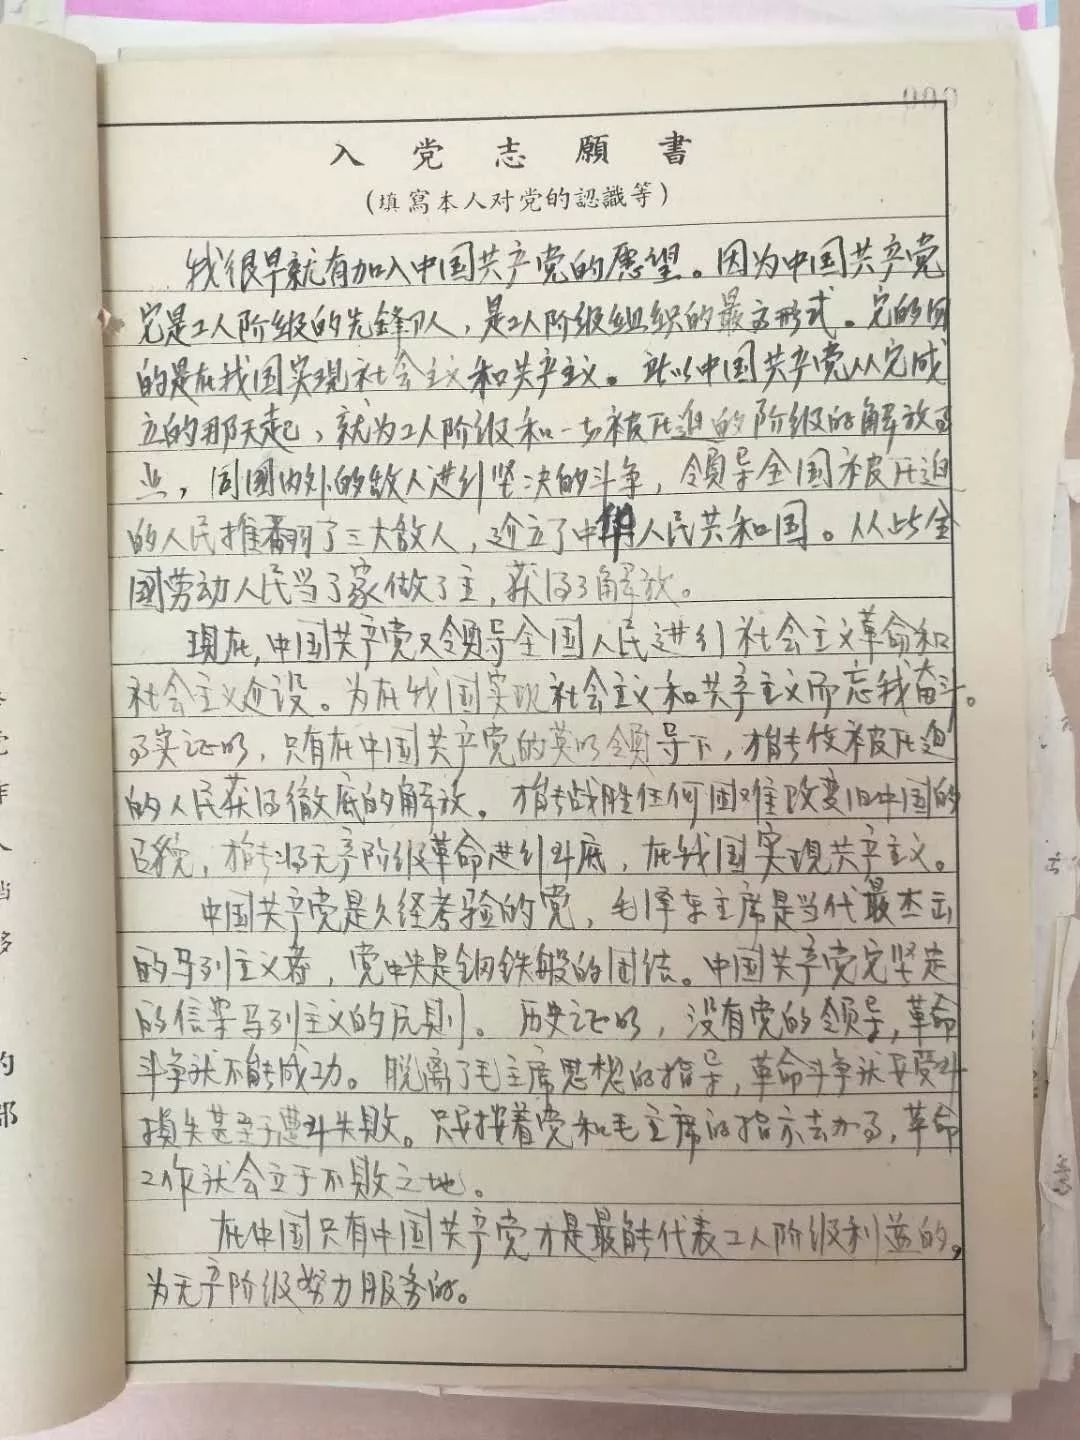 000
入党志願書
(填寫本人对党的認識等)
我很早就有加入中国共产党的愿望。因为中国共产党
它是工人阶级的先锋队，是工人阶级组织的最高形式。它的目
的是在我国实现社会主义和共产主义。所以中国共产党从它成
立的那天起，就为工人阶级和一切被压迫的阶级的解放事
业，同国内外的敌人进行坚决的斗争，領导全国被压迫
的人民推翻了三大敌人，建立了中華人民共和国。从此全
国劳动人民当了家做了主，获得了解放。
現在，中国共产党又領导全国人民进行社会主义革命和
社会主义建设。为在我国实现社会主义和共产主义而忘我奋斗。
事实证明，只有在中国共产党的英明領导下，才能使被压迫
的人民获得徹底的解放。才能战胜任何困难改变旧中国的
面貌，才能将无产阶级革命进行到底，在我国实現共产主义。
中国共产党是久经考验的党，毛泽东主席是当代最杰出
的马列主义者，党中央是钢铁般的团结。中国共产党它坚定
的信奉马列主义的原则。历史证明，没有党的領导，革命
斗争就不能成功。脱离了毛主席思想的指导，革命斗争就要受到
損失甚至于遭到失败。只要按着党和毛主席的指示去办事，革命
工作就会立于不敗之地。
在中国只有中国共产党才是最能代表工人阶级利益的，
为无产阶级努力服务的。
的
部